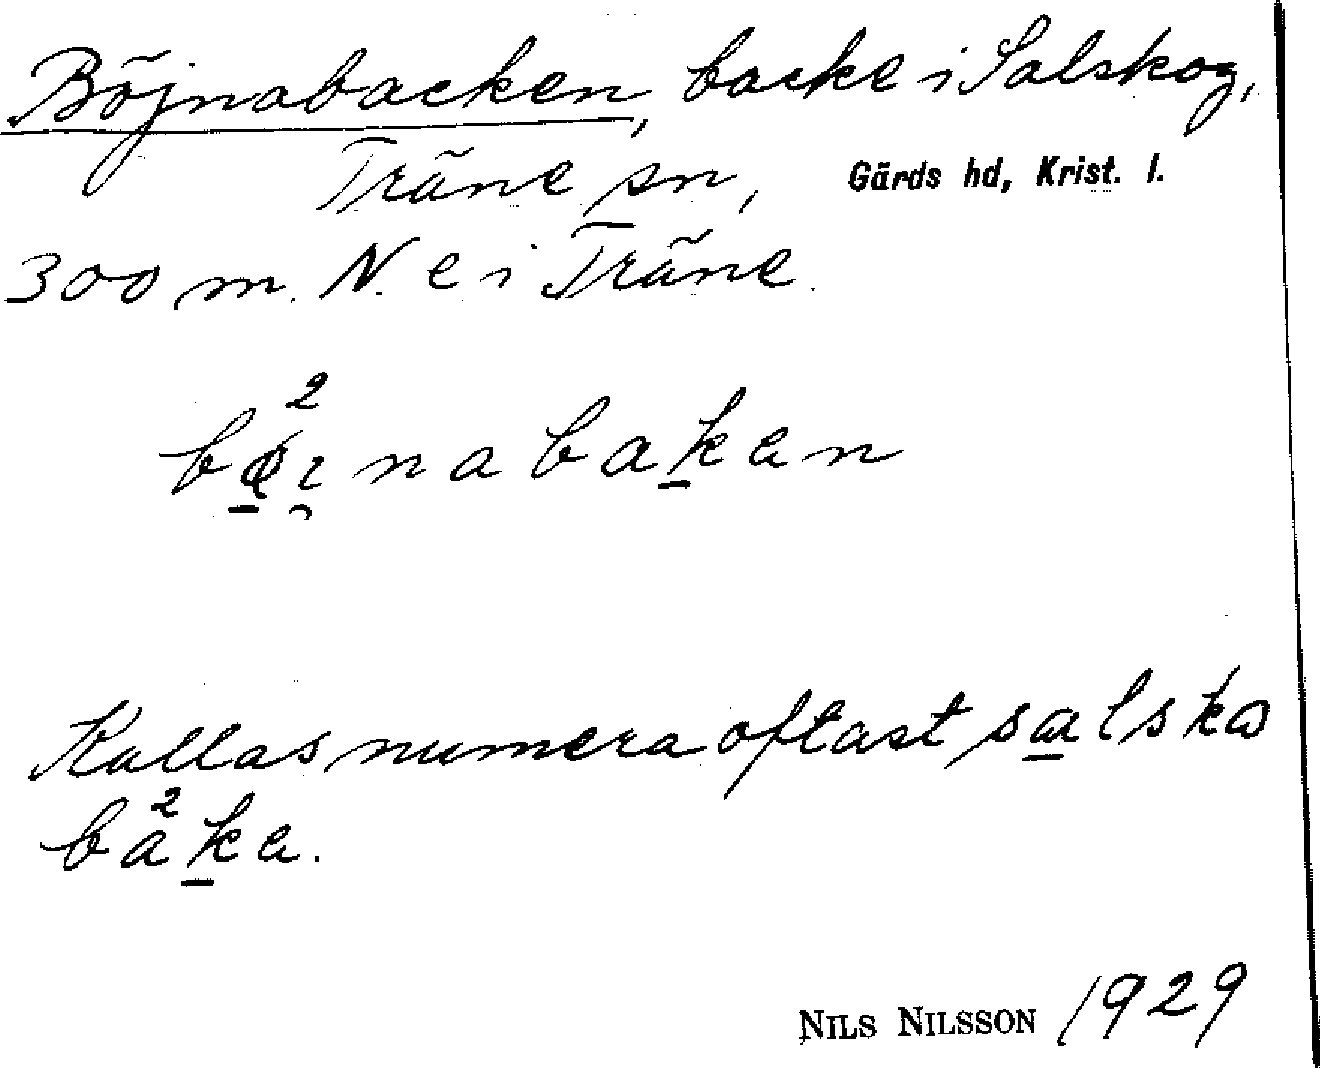 Böjnabacken, backe i Salskog,
Träne sn, Gärds hd, Krist. l.
300 m. N. e i Träne.
Kallas numera oftast salska
baka.
NILS NILSSON 1929